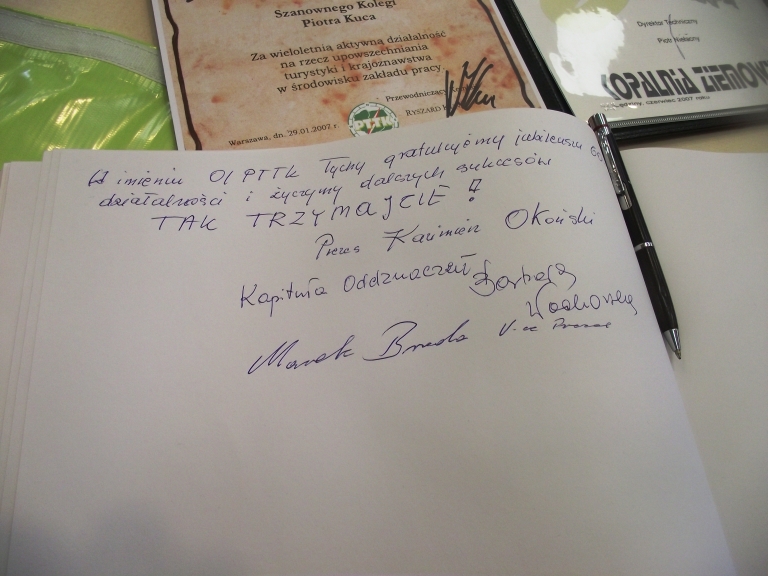 Szanownego Kolegi
Piotra Kuca
Za wieloletnią aktywną działalność
na rzecz upowszechniania
turystyki i krajoznawstwa
w środowisku zakładu pracy.
Przewodniczący
RYSZARD
PTTK
Warszawa, dn. 29.01.2007 r.
Dyrektor Techniczny
Piotr
KOPALNIA ZIEMOW
czerwiec 2007 roku
W imieniu O/PTTK Tychy gratulujemy jubileuszu
działalności i życzymy dalszych sukcesów
TAK TRZYMAJCIE !
Prezes Kazimierz Okoński
Kapituła Odznaczeń Barbara
Marek V-ce Prezes